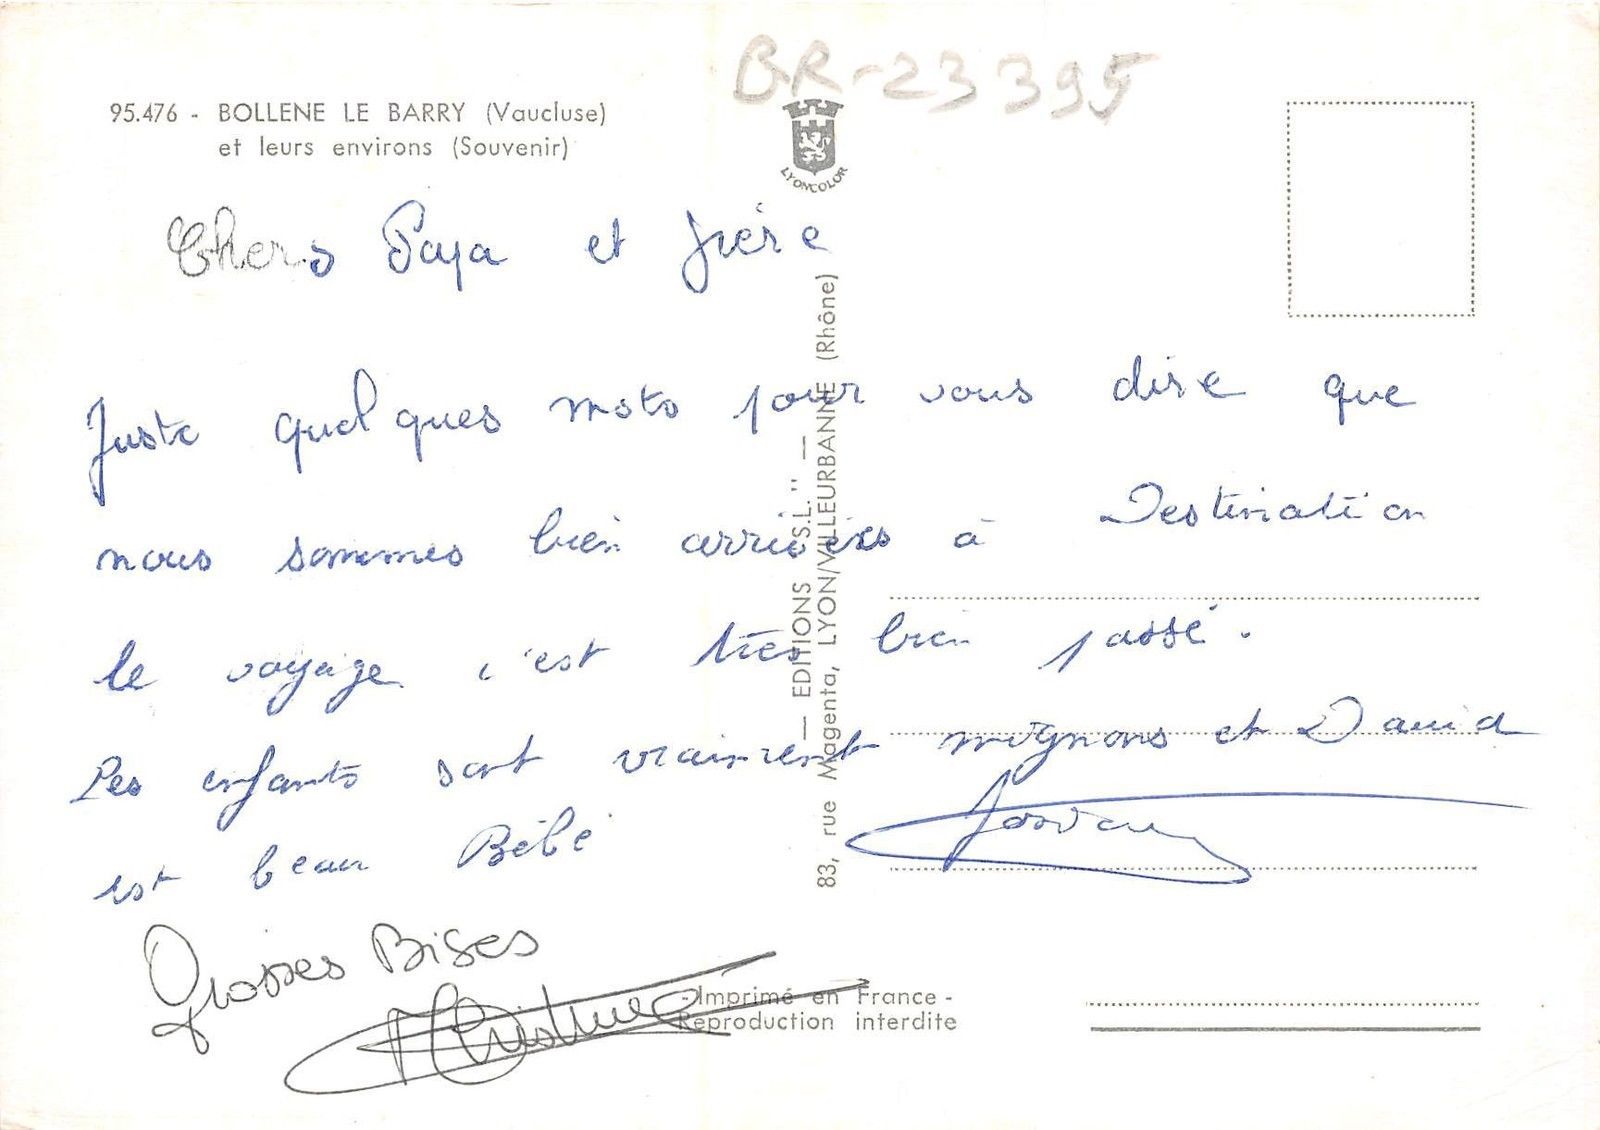 BR-23395
95.476 - BOLLENE LE BARRY (Vaucluse)
et leurs environs (Souvenir)
LYONCOLOR
Chers Papa et frère
Juste quelques mots pour vous dire que
nous sommes bien arrivées à Destination
le voyage c'est très bien passé.
Les enfants sont vraiment mignons et David
est beau Bébé
Grosses Bises
— EDITIONS "S.L." —
83, rue Magenta, LYON/VILLEURBANNE (Rhône)
- Imprimé en France -
Reproduction interdite